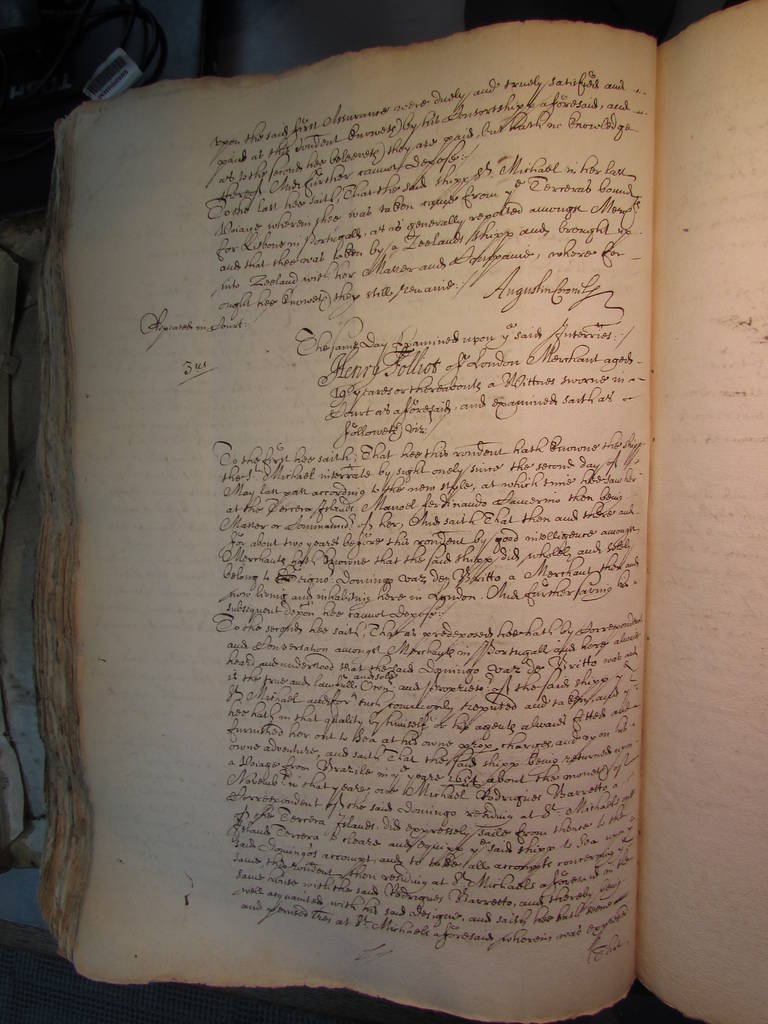 upon the said first Assurance were duely and truely satisfied and
paid as this rondent knoweth by his Consortshipp aforesaid, and
as to the second hee beleeveth they are paid, but hath no knowledge
thereof. And further cannot depose:/
To the last hee saith, That the said shipp St. Michael in her last
Voiage wherein shee was taken came from ye Terceras bound
for Lisbone in Portugall, as is generally reported amongst
and that shee was taken by a Zeelands shipp and brought up
into Zeeland with her Master and Companie, where for
ought hee knoweth they still remaine:/
Repeated in Court.
The same Day Examined upon ye said Interries:/
3us
Henry Folliot of London Merchant aged
yeares or thereabouts a Wittnes sworne in
Court as aforesaid, and examined saith as
followeth, viz:/
To the first hee saith, That hee this rondent hath knowne the shipp
the St. Michael interrate by sight onely since the second day of
May last past according to the new style, at which time hee saw her
at the Tercera Islands, Manoel Ferdinando then being
Master or Command of her, And saith That then and there and
for about two yeares before this rondent by good intelligence amongst
Merchants hath knowne that the said shipp did wholly and solely
belong to Seignor Domingo vaz de Britto a Merchant then and
now living and inhabiting here in London. And further saving his
subsequent depon hee cannot depose:/
To the second hee saith, That as predeposed hee hath by Correspondence
and Conversation amongst Merchants in Portugall and here alwaies
heard and understood that the said Domingo vaz de Britto was and
is the true and lawfull and sole Owner and Proprietor of the said shipp ye
St. Michael and for such commonly reputed and taken, and yt
hee hath in that quality by himselfe or his agents alwaies fitted and
furnished her out to Sea at his owne prop charges, and upon his
owne adventure, and saith That the said shipp being returned upon
a Voiage from Brazile in ye yeare about the moneth of
November in that yeare, one Michael Rodrigues Barretto a
Correspondent of the said Domingo residing at St. Michaels one
of the Tercera Islands, did expressely saile from thence to the
Island Tercera to cleare and equipp ye said shipp to Sea upon
said Domingos accompt, and to take all accompts concerning ye
same this rondent then residing at St. Michaels aforesaid in the
same house with the said Rodrigues Barretto, and thereby being
well acquainted with his said designe, and saith hee hath seene
and perused at St. Michaels aforesaid wherein was expressed
That